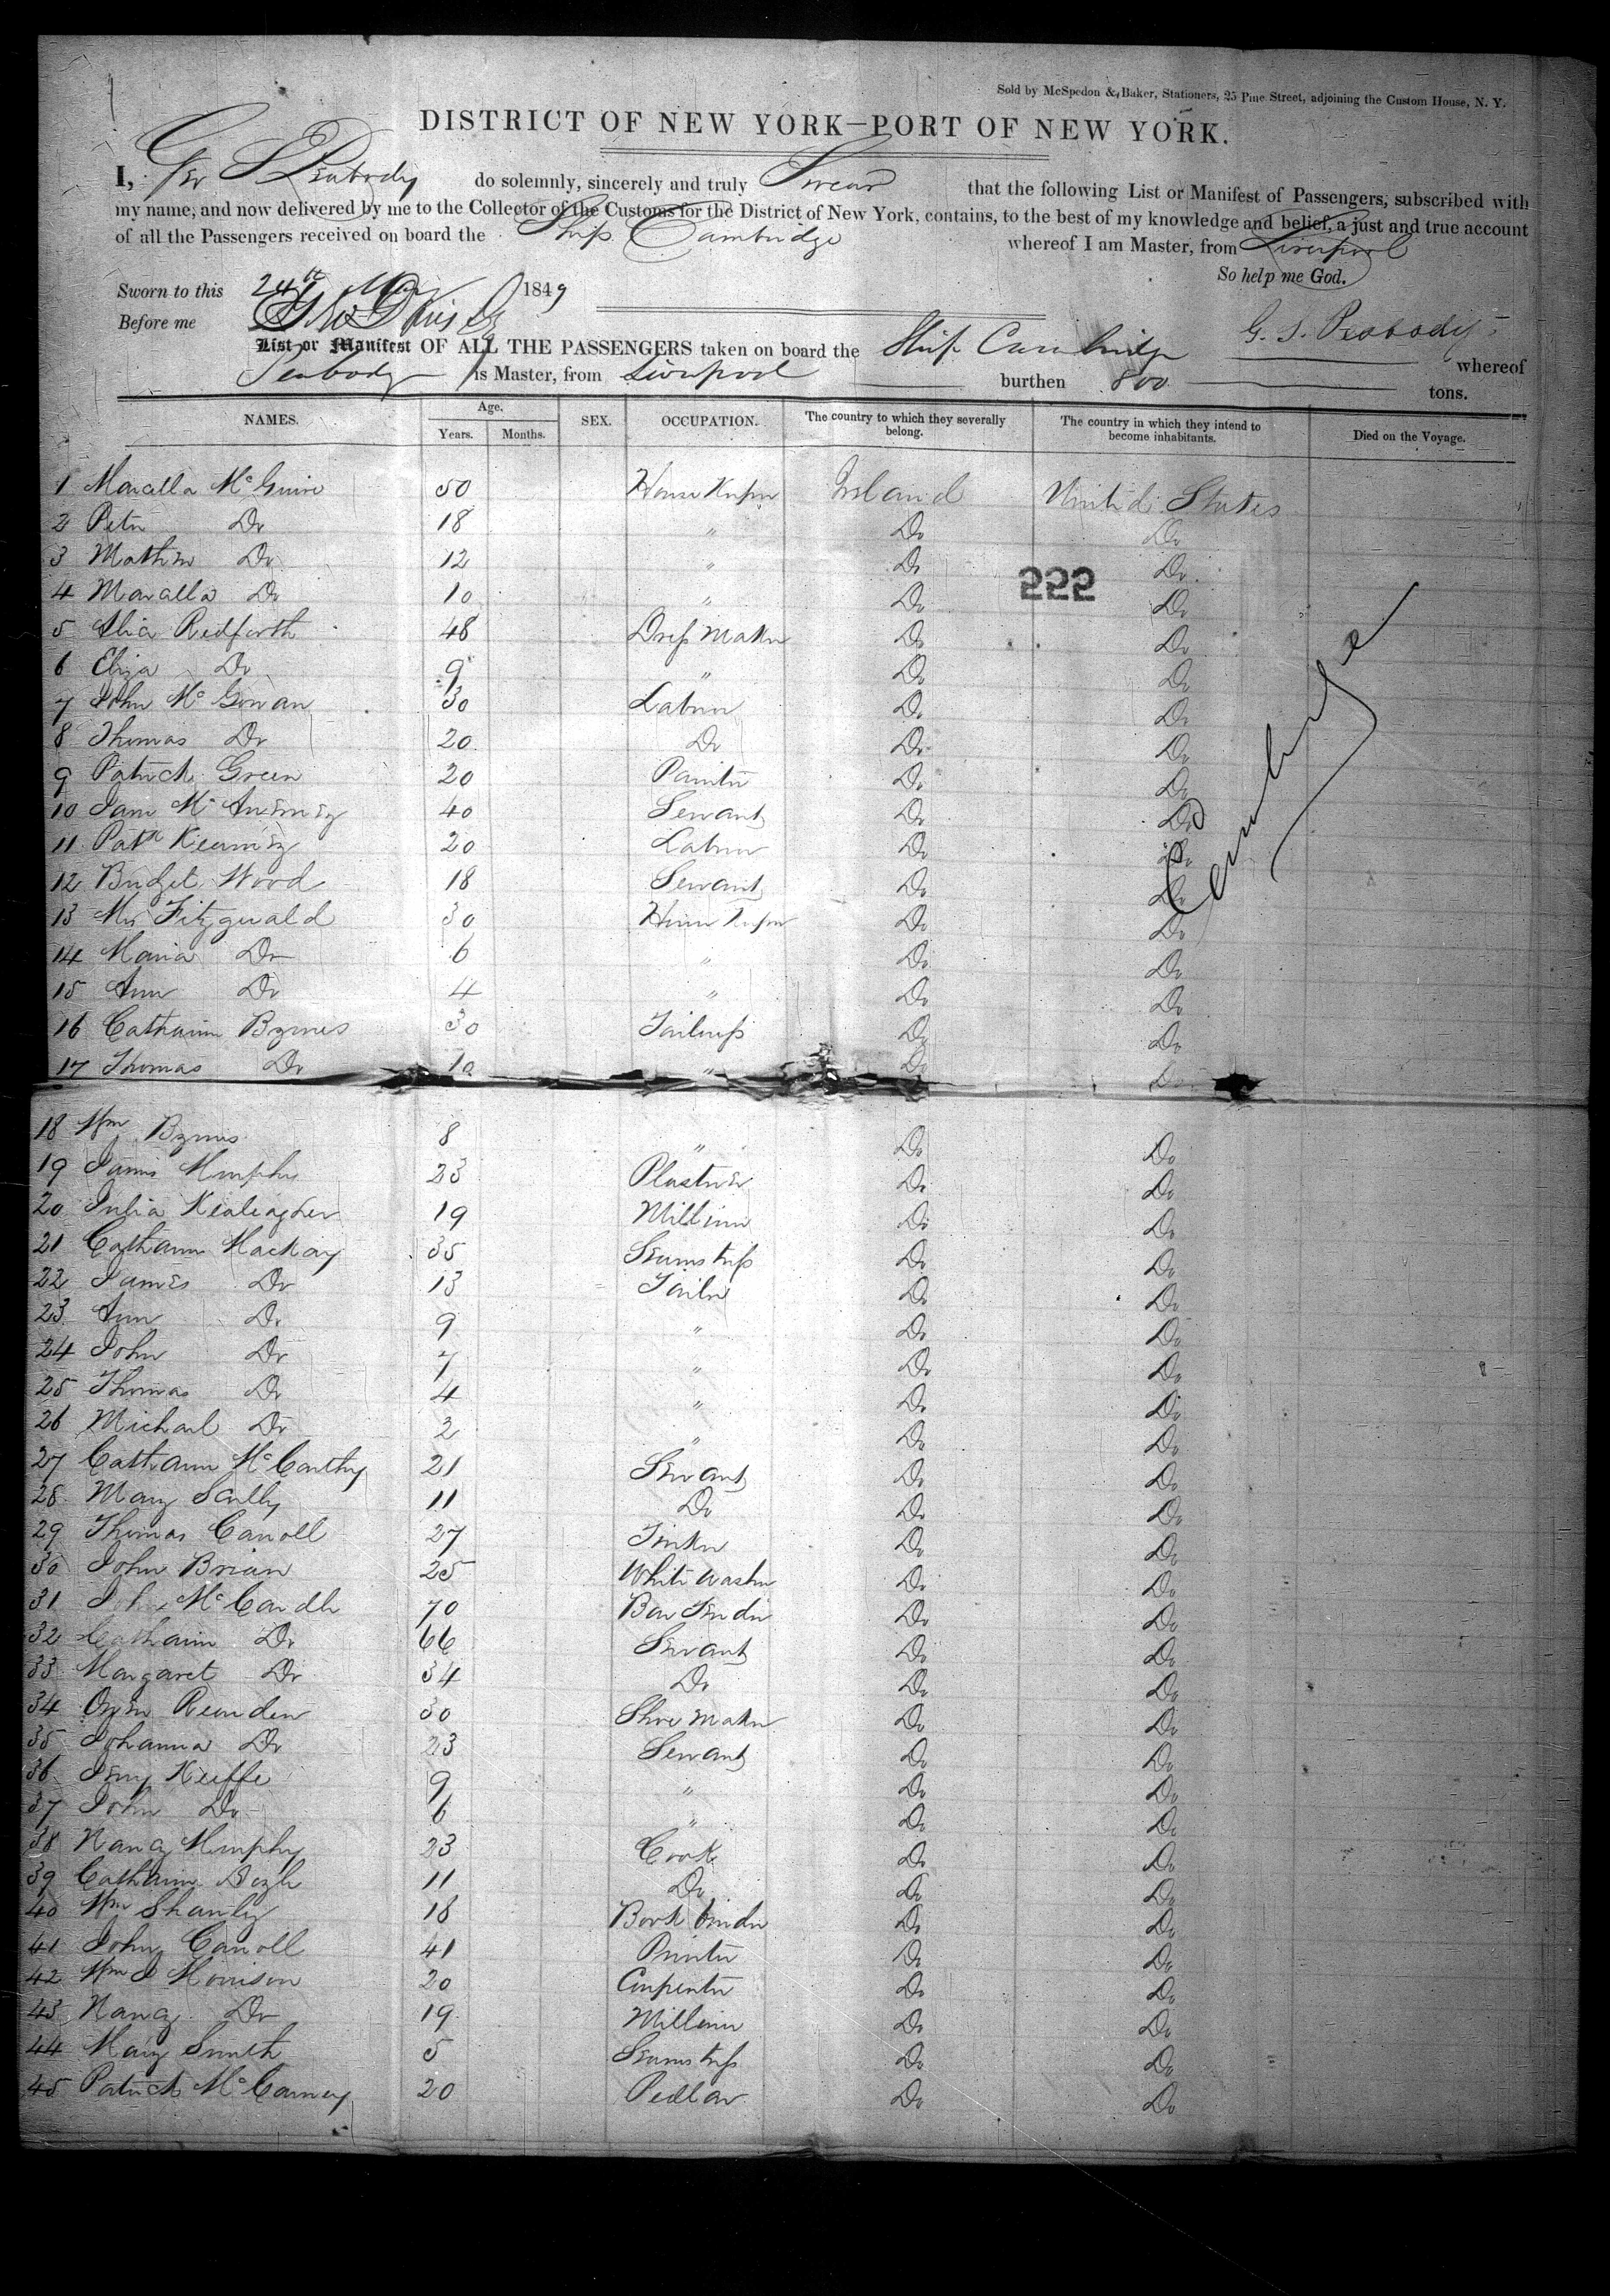 Sold by McSpedon & Baker, Stationers, 25 Pine Street, adjoining the Custom House, N. Y.
DISTRICT OF NEW YORK—PORT OF NEW YORK.
I, Geo S Peabody do solemnly, sincerely and truly Swear that the following List or Manifest of Passengers, subscribed with
my name, and now delivered by me to the Collector of the Customs for the District of New York, contains, to the best of my knowledge and belief, a just and true account
of all the Passengers received on board the Ship Cambridge whereof I am Master, from Liverpool
So help me God.
Sworn to this 24th May 1849
Before me
G. S. Peabody
List or Manifest OF ALL THE PASSENGERS taken on board the Ship Cambridge whereof
Peabody is Master, from Liverpool burthen 800 tons.
NAMES. Age. Years. Months. SEX. OCCUPATION. The country to which they severally belong. The country in which they intend to become inhabitants. Died on the Voyage.
1 Marcella McGuire 50 House Keeper Ireland United States
2 Peter Do 18 " Do Do
3 Mathew Do 12 " Do Do
222
4 Marcella Do 10 " Do Do
5 Alicia Redforth 48 Dress Maker Do Do
6 Eliza Do 9 " Do Do
7 John McGowan 30 Labourer Do Do
8 Thomas Do 20 Do Do Do
Cambridge
9 Patrick Green 20 Painter Do Do
10 Jane Mc 40 Servant Do Do
11 Patk Kearney 20 Labourer Do Do
12 Bridget Wood 18 Servant Do Do
13 Mrs Fitzgerald 30 House Keeper Do Do
14 Maria Do 6 " Do Do
15 Ann Do 4 " Do Do
16 Catharine Byrnes 30 Tailress Do Do
17 Thomas Do 10 " Do Do
18 Wm Byrnes 8 " Do Do
19 James Murphy 23 Plasterer Do Do
20 Julia Kealeagher 19 Milliner Do Do
21 Catharine Mackay 35 Seamstress Do Do
22 James Do 13 Tailor Do Do
23 Ann Do 9 " Do Do
24 John Do 7 " Do Do
25 Thomas Do 4 " Do Do
26 Michael Do 2 " Do Do
27 Catharine McCarthy 21 Servant Do Do
28 Mary Scully 11 Do Do Do
29 Thomas Carroll 27 Tinker Do Do
30 John Brian 25 White Washer Do Do
31 John McCardle 70 Bar Tender Do Do
32 Catharine Do 66 Servant Do Do
33 Margaret Do 34 Do Do Do
34 Owen Rearden 30 Shoe Maker Do Do
35 Johanna Do 23 Servant Do Do
36 Jerry Keeffe 9 " Do Do
37 John Do 6 " Do Do
38 Nancy Murphy 23 Cook Do Do
39 Catharine 11 Do Do Do
40 Wm Shanly 18 Book binder Do Do
41 John Carroll 41 Printer Do Do
42 Wm J Morrison 20 Carpenter Do Do
43 Nancy Do 19 Milliner Do Do
44 Mary Smith 5 Seamstress Do Do
45 Patrick McCarney 20 Pedlar Do Do